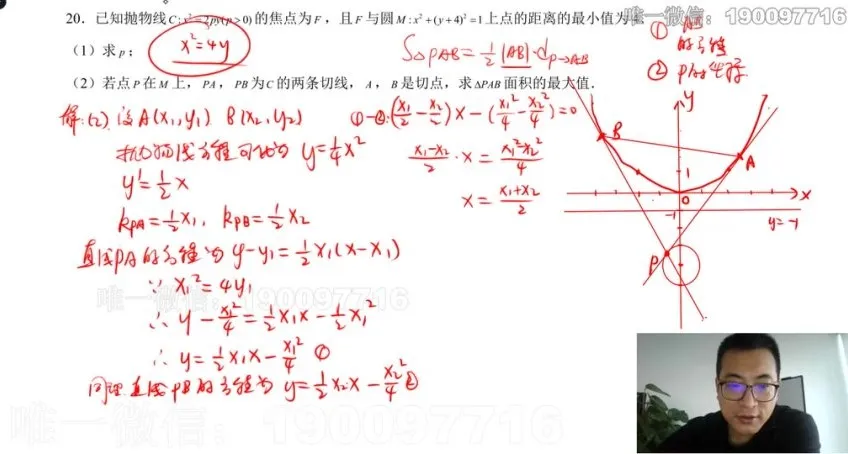 20. 已知抛物线 C: x²=2py(p>0) 的焦点为 F，且 F 与圆 M: x²+(y+4)²=1 上点的距离的最小值为
唯一微信: 190097716
(1) 求 p；
x²=4y
S△PAB=½|AB|·dP→AB
① AB的方程
② P的坐标
(2) 若点 P 在 M 上，PA，PB 为 C 的两条切线，A，B 是切点，求 ΔPAB 面积的最大值.
解:(2) 设A(x₁,y₁) B(x₂,y₂)
抛物线方程可化为 y=¼x²
y'=½x
kPA=½x₁, kPB=½x₂
直线PA的方程为 y-y₁=½x₁(x-x₁)
∵ x₁²=4y₁
∴ y-x₁²/4=½x₁x-½x₁²
∴ y=½x₁x-x₁²/4 ①
同理直线PB的方程为 y=½x₂·x-x₂²/4 ②
①-②:(x₁/2-x₂/2)x-(x₁²/4-x₂²/4)=0
(x₁-x₂)/2·x=(x₁²-x₂²)/4
x=(x₁+x₂)/2
y
B
A
1
0
x
-1
y=-1
P
唯一微信: 190097716
唯一微信: 190097716